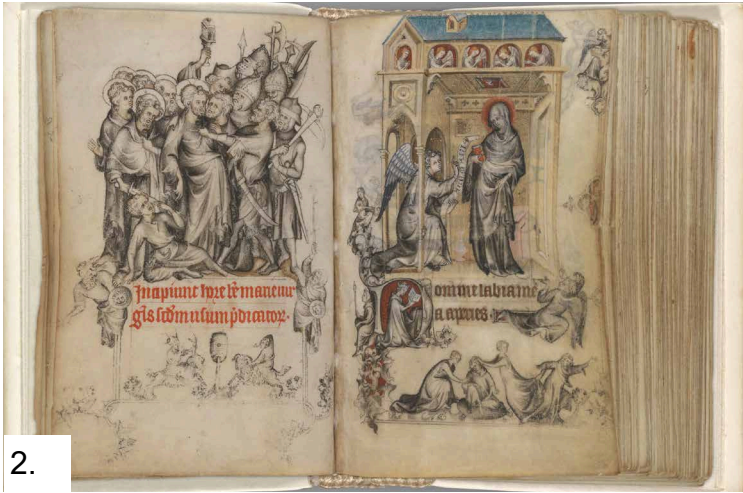 Incipiunt hore be marie uir
gis scdm usum pdicator.
Domine labia me
a aperies
2.